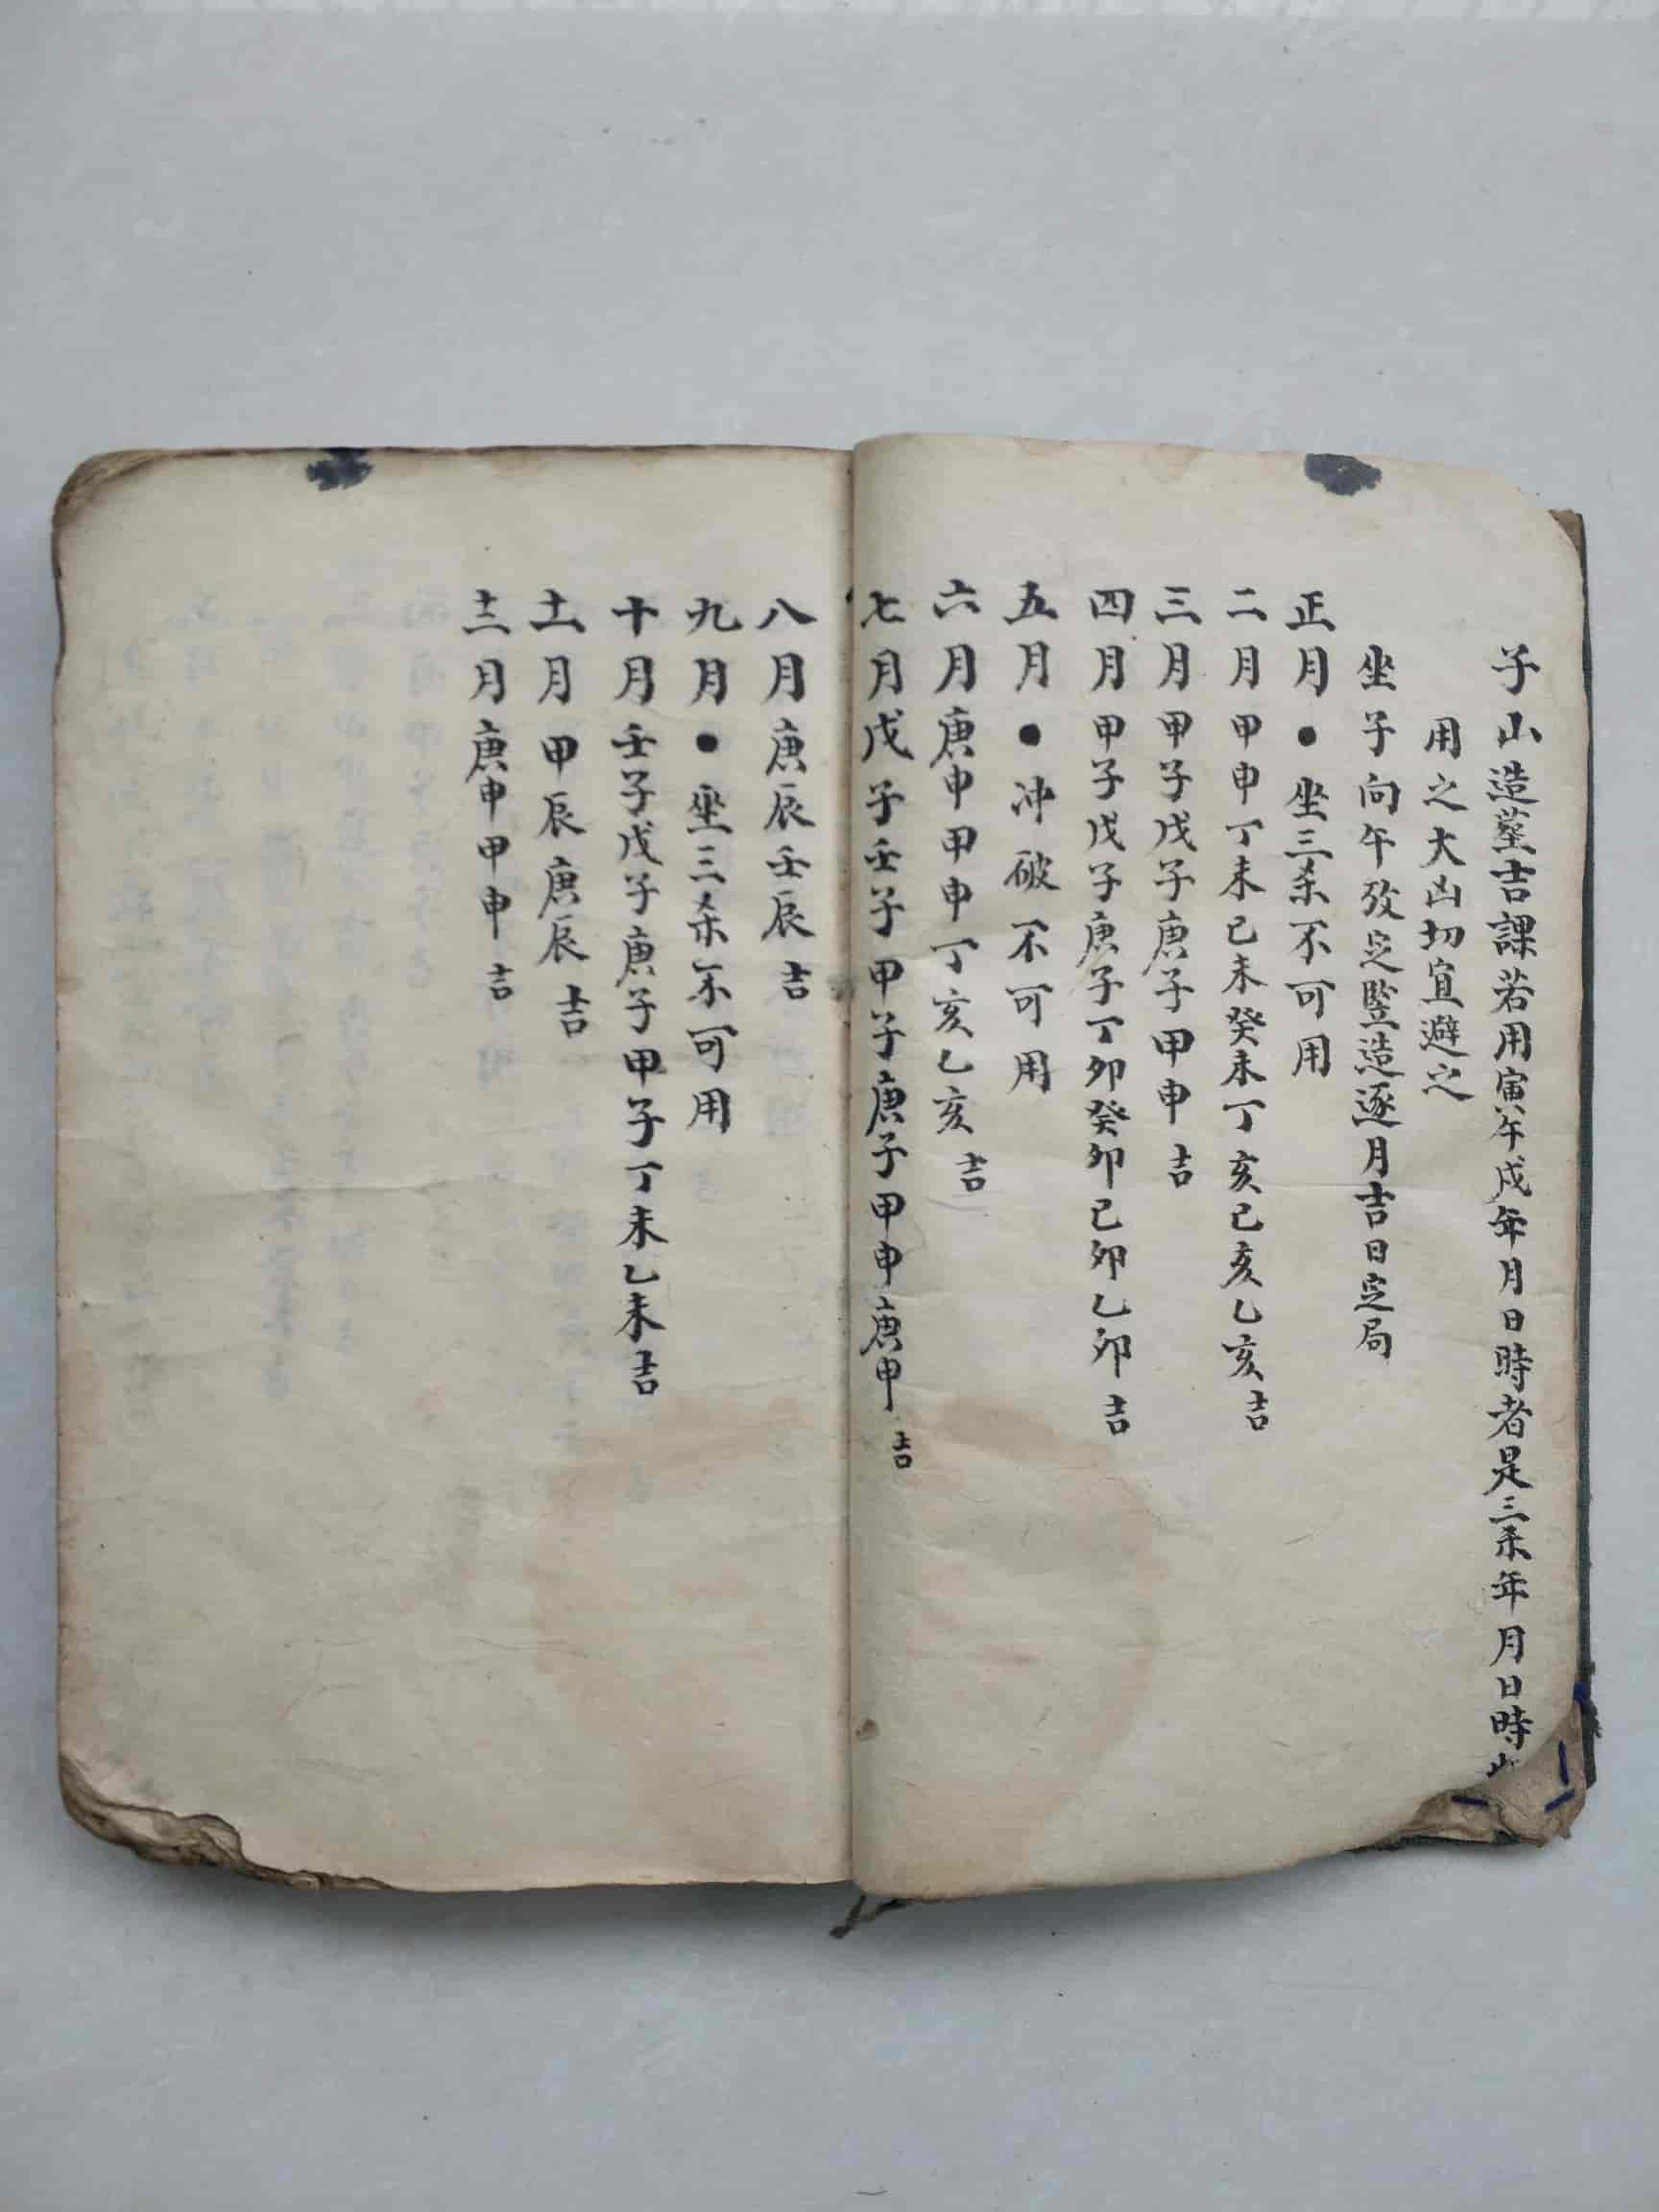 子山造墓吉課若用寅午戌年月日時者是三杀年月日時
用之大凶切宜避之
坐子向午攷定竪造逐月吉日定局
正月●坐三杀不可用
二月甲申丁未己未癸未丁亥己亥乙亥吉
三月甲子戊子庚子甲申吉
四月甲子戊子庚子丁卯癸卯己卯乙卯吉
五月●冲破不可用
六月庚申甲申丁亥乙亥吉
七月戊子壬子甲子庚子甲申庚申吉
八月庚辰壬辰吉
九月●坐三杀不可用
十月壬子戊子庚子甲子丁未乙未吉
十一月甲辰庚辰吉
十二月庚申甲申吉